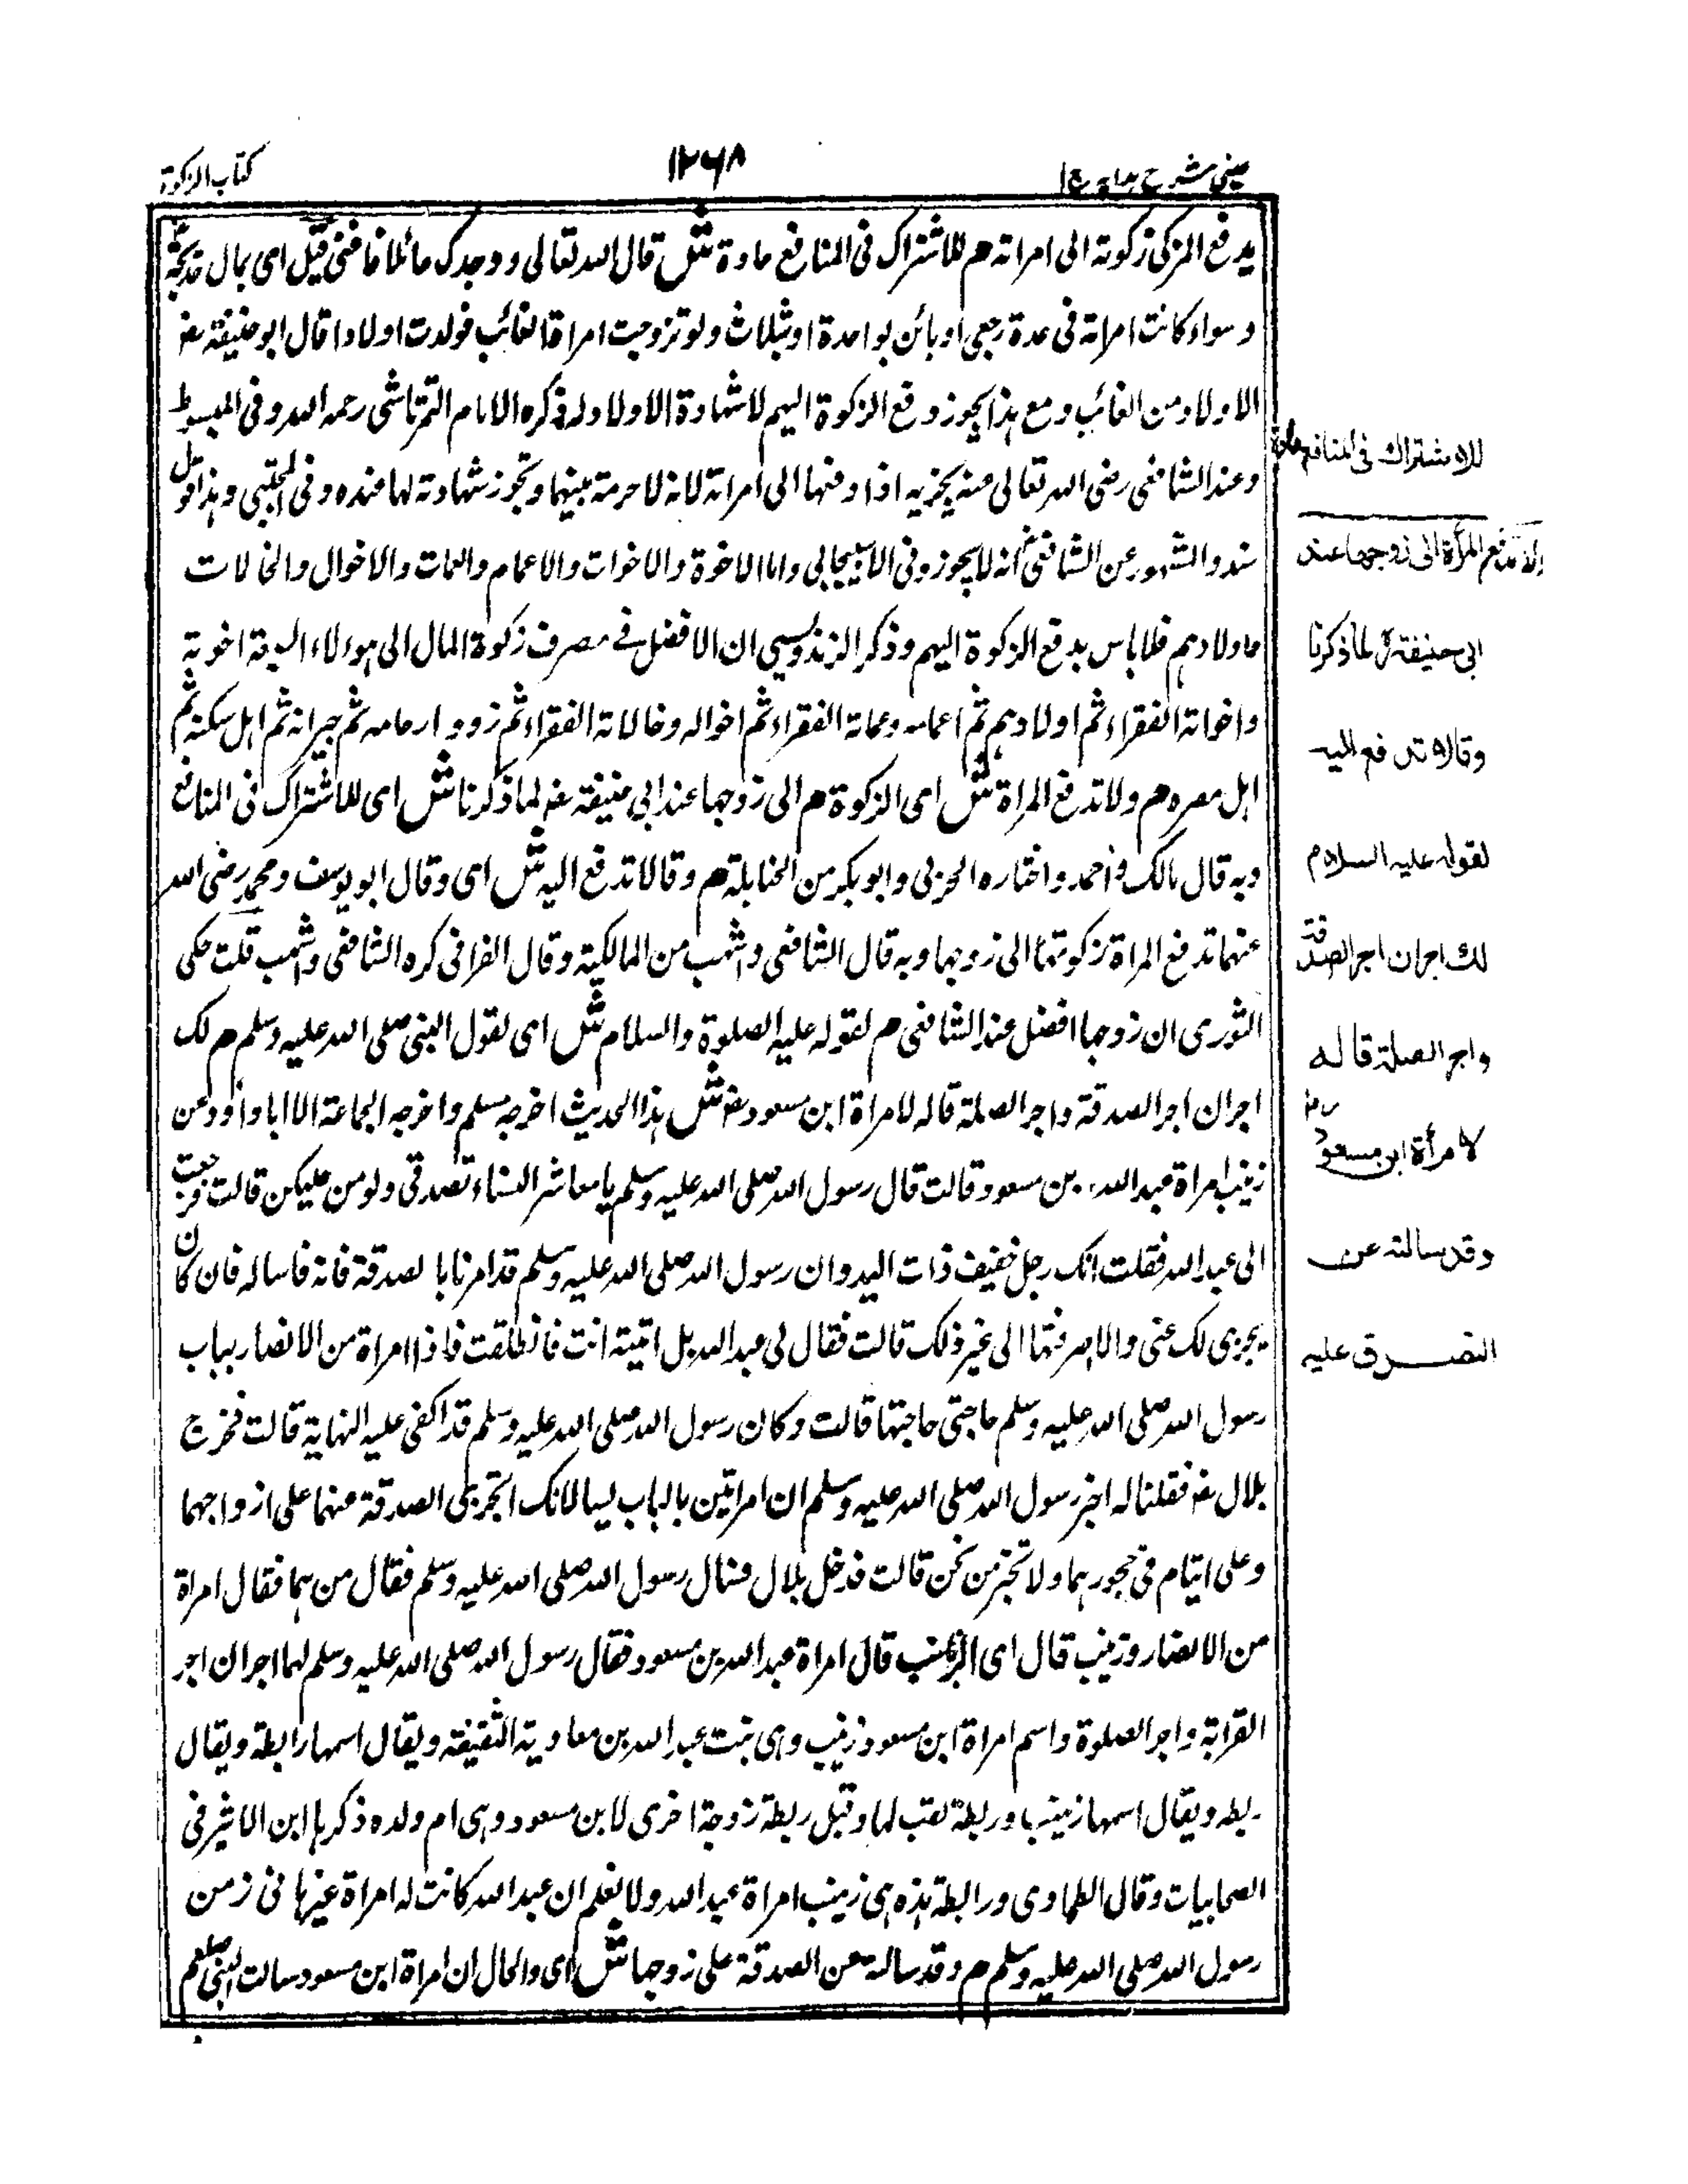 عینی شرح ہدایہ ج ا
١٢٦٨
کتاب الزکوة
یدفع المزکی زکوتہ الی امراتہ م للاشتراک فی المنافع عادة ش قال اللہ تعالی ووجدک عائلا فاغنی قیل ای بمال خدیجة
وسواء کانت امراتہ فی عدة رجعی او بائن بواحدة او بثلاث ولو تزوجت امراة الغائب فولدت اولادا قال ابو حنیفة رضہ
الاولاد من الغائب ومع ہذا یجوز دفع الزکوة الیہم لا شہادة الاولاد لہ ذکرہ الامام التمرتاشی رحمہ اللہ وفی المبسوط
وعند الشافعی رضی اللہ تعالی عنہ یجزیہ اذا دفعہا الی امراتہ لانہ لا حرمة بینہما وتجوز شہادتہ لہا عندہ وفی المجتبی وہذا قول
شذ والمشہور عن الشافعی انہ لا یجوز وفی الاسبیجابی واما الاخوة والاخوات والاعمام والعمات والاخوال والخالات
واولادہم فلا باس بدفع الزکوة الیہم وذکر الزندویسی ان الافضل فے مصرف زکوة المال الی ہولاء السبعة اخوتہ
واخواتہ الفقراء ثم اولادہم ثم اعمامہ وعماتہ الفقراء ثم اخوالہ وخالاتہ الفقراء ثم ذوو ارحامہ ثم جیرانہ ثم اہل سکنہ ثم
اہل مصرہ م ولا تدفع المراة ش ای الزکوة م الی زوجہا عند ابی حنیفة رضہ لما ذکرنا ش ای للاشتراک فی المنافع
وبہ قال مالک واحمد واختارہ الخرقی وابو بکر من الحنابلة م وقالا تدفع الیہ ش ای وقال ابو یوسف ومحمد رضی اللہ
عنہما تدفع المراة زکوتہا الی زوجہا وبہ قال الشافعی واشہب من المالکیة وقال القرافی کرہ الشافعی واشہب قلت حکی
الثوری ان زوجہا افضل عند الشافعی م لقولہ علیہ الصلوة والسلام ش ای لقول النبی صلی اللہ علیہ وسلم م لک
اجران اجر الصدقة واجر الصلة قالہ لامراة ابن مسعود رضہ ش ہذا الحدیث اخرجہ مسلم واخرجہ الجماعة الا ابا داؤد عن
زینب امراة عبد اللہ بن مسعود قالت قال رسول اللہ صلی اللہ علیہ وسلم یا معاشر النساء تصدقی ولو من حلیکن قالت فرجعت
الی عبد اللہ فقلت انک رجل خفیف ذات الید وان رسول اللہ صلی اللہ علیہ وسلم قد امرنا بالصدقة فاتہ فاسالہ فان کان
یجزی لک عنی والا صرفتہا الی غیر ذلک قالت فقال لی عبد اللہ بل اتیتہ انت فانطلقت فاذا امراة من الانصار بباب
رسول اللہ صلی اللہ علیہ وسلم حاجتی حاجتہا قالت وکان رسول اللہ صلی اللہ علیہ وسلم قد اکفی علیہ النہایة قالت فخرج
بلال رضہ فقلنا لہ اخبر رسول اللہ صلی اللہ علیہ وسلم ان امراتین بالباب یسالانک اتجزی الصدقة عنہما علی ازواجہما
وعلی ایتام فی حجورہما ولا تخبر من نحن قالت فدخل بلال فسال رسول اللہ صلی اللہ علیہ وسلم فقال من ہما فقال امراة
من الانصار وزینب قال ای الزیانب قال امراة عبد اللہ بن مسعود فقال رسول اللہ صلی اللہ علیہ وسلم لہما اجران اجر
القرابة واجر الصلوة واسم امراة ابن مسعود زینب وہی بنت عبد اللہ بن معاویة الثقیفة ویقال اسمہا رابطة ویقال
ریطہ ویقال اسمہا زینب وریطة لقب لہا وقیل ریطة زوجة اخری لابن مسعود وہی ام ولدہ ذکرہا ابن الاثیر فی
الصحابیات وقال الطحاوی ورابطة ہذہ ہی زینب امراة عبد اللہ ولا نعلم ان عبد اللہ کانت لہ امراة غیرہا فی زمن
رسول اللہ صلی اللہ علیہ وسلم م وقد سالتہ عن الصدقة علی زوجہا ش ای والحال ان امراة ابن مسعود سالت النبی صلعم
للاشتراك فى المنافع عادة
ولا تدفع المرأة الى زوجها عند
ابى حنيفة رح لما ذكرنا
وقالا تدفع اليه
لقوله عليه السلام
لك اجران اجر الصدقة
واجر الصلة قاله
لامرأة ابن مسعود رض
وقد سالته عن
التصدق عليه